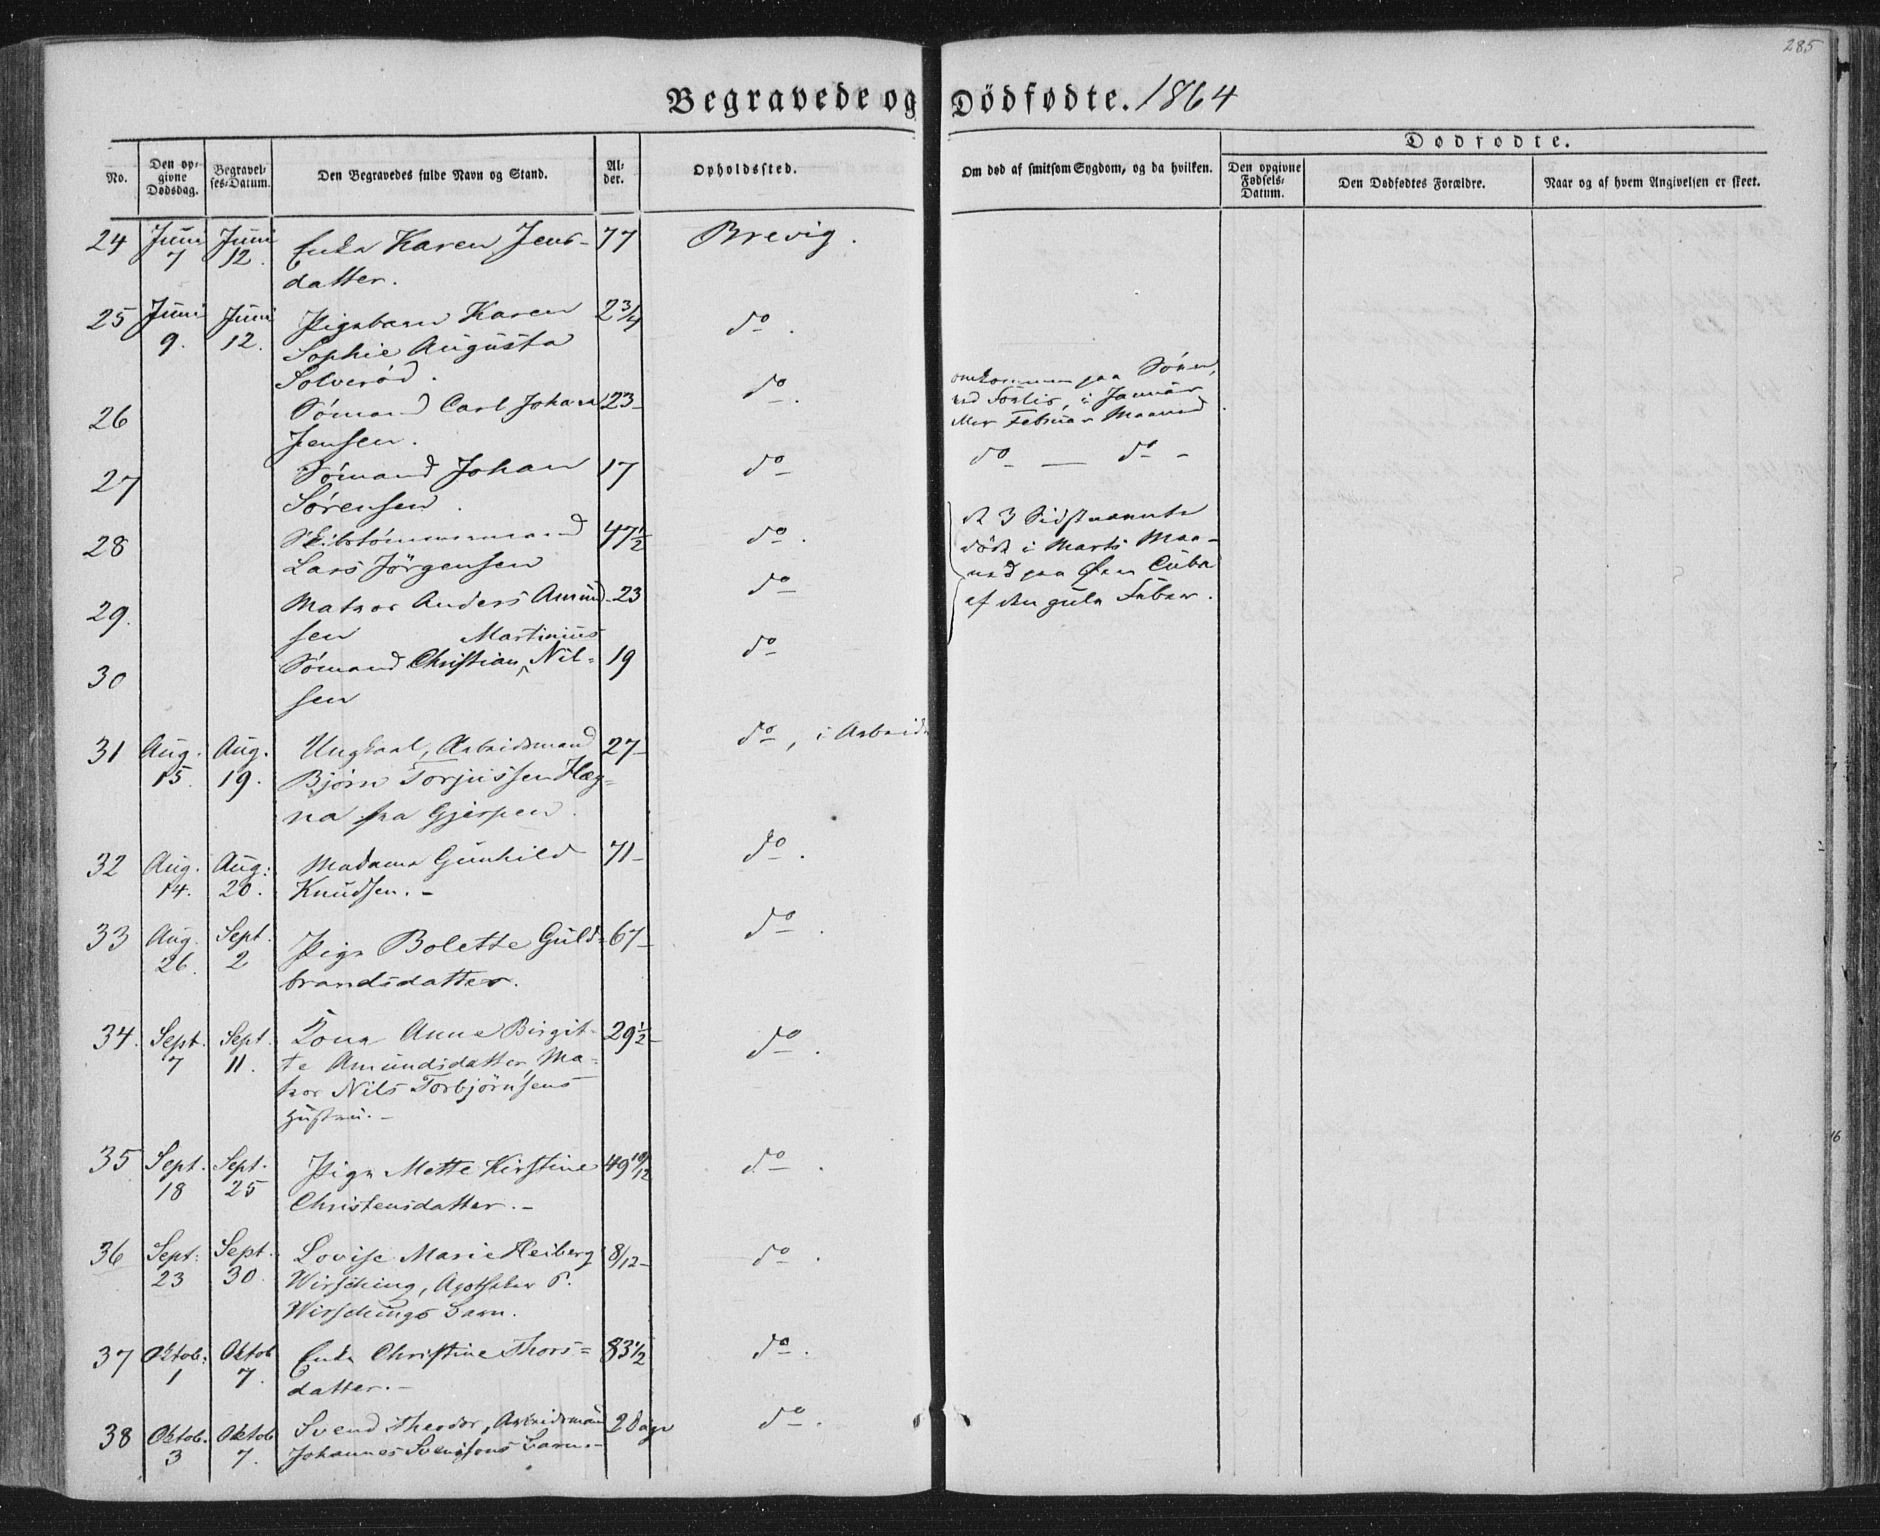 285
Begravede og Dödfødte. 1864
No.
Den op-
givne
Dødsdag.
Begravel-
ses-Datum.
Den Begravedes fulde Navn og Stand.
Al-
der.
Opholdssted.
Om død af smitsom Sygdom, og da hvilken.
Dødfødte.
Den opgivne
Fødsels-
Datum.
Den Dødfødtes Forældre.
Naar og af hvem Angivelsen er skeet.
24 Juni 7 Juni 12. Enke Karen Jens- 77 Brevig.
datter.
25 Juni 9. Juni 12. Pigebarn Karen 2 3/4 do.
Sophie Augusta
Solverød.
26 Sømand Carl Johan 23- do. omkommen paa Søen,
Jensen. ved i Januar
eller Februar Maaned.
27 Sømand Johan 17 do do — do -
Sørensen.
28 Skibstømmermand 47 1/2 do. de 3 Sidstnævnte
Lars Jörgensen døde i Marts Maa-
29. Matros Anders Amund- 23 do ned paa Øen Cuba
sen af den gule Feber.
Martinius
30 Sømand Christian Nil- 19 do
sen
31 Aug. 15. Aug. 19. Ungkarl, Arbeidsmand 27- do, i Arbeide
Bjørn Torjussen Hæg-
na fra Gjerpen.
32 Aug. 14. Aug: 20. Madame Gunhild 71- do.
Knudsen. -
33 Aug. 26. Sept. 2 Pige Bolette Guld- 67- do.
brandsdatter.
34. Sept. 7 Sept. 11. Kone Anne Birgit- 29 1/2- do.
te Amundsdatter, Ma-
tros Nils Torbjörnsens
Hustru. -
35 Sept. 18 Sept. 25 Pige Mette Kirstine 49 10/12 do.
Christensdatter. -
36 Sept: 23 Sept. 30. Lovise Marie Heiberg 8/12- do.
Wirsching, Apotheker
Wirschings Barn.
37 Oktob: 1 Oktob 7. Enke Christine Thors= 83 1/2 do.
datter. -
38 Oktob. 3 Oktob 7. Svend Theodor, Arbeidsmand 2 Dage do.
Johannes Svendsens Barn. -